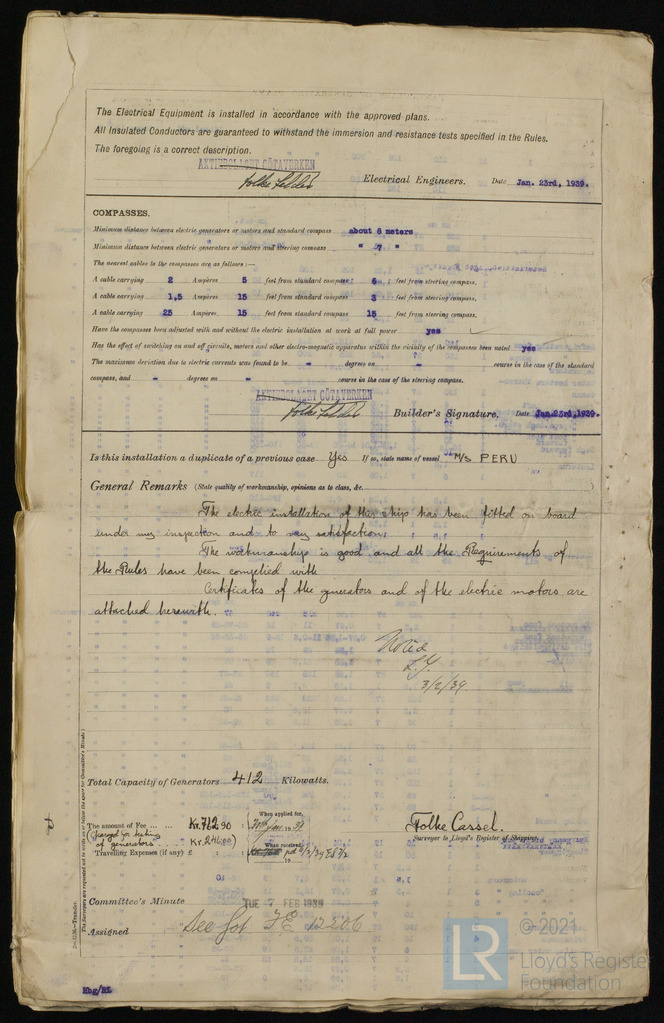 The Electrical Equipment is installed in accordance with the approved plans.
All Insulated Conductors are guaranteed to withstand the immersion and resistance tests specified in the Rules.
The foregoing is a correct description.
AKTIEBOLAGET GÖTAVERKEN
Electrical Engineers. Date Jan. 23rd, 1939.
COMPASSES.
Minimum distance between electric generators or motors and standard compass about 8 meters
Minimum distance between electric generators or motors and steering compass " 7 "
The nearest cables to the compasses are as follows:—
A cable carrying 2 Ampères 5 feet from standard compass 6 feet from steering compass.
A cable carrying 1,5 Ampères 15 feet from standard compass 3 feet from steering compass.
A cable carrying 25 Ampères 15 feet from standard compass 15 feet from steering compass.
Have the compasses been adjusted with and without the electric installation at work at full power yes
Has the effect of switching on and off circuits, motors and other electro-magnetic apparatus within the vicinity of the compasses been noted yes
The maximum deviation due to electric currents was found to be - degrees on - course in the case of the standard
compass, and - degrees on - course in the case of the steering compass.
AKTIEBOLAGET GÖTAVERKEN
Builder's Signature. Date Jan.23rd,1939.
Is this installation a duplicate of a previous case Yes If so, state name of vessel M/S PERU
General Remarks (State quality of workmanship, opinions as to class, &c.)
The electric installation of this ship has been fitted on board
under my inspection and to my satisfaction.
The workmanship is good and all the Requirements of
the Rules have been complied with
Certificates of the generators and of the electric motors are
attached herewith.
Noted
3/2/39
Total Capacity of Generators 412 Kilowatts.
The amount of Fee ... ... Kr.712.90
When applied for, 19 39
(Charged for testing of generators Kr.
Travelling Expenses (if any) £ : :
When received, 19
Folke Cassel.
Surveyor to Lloyd's Register of Shipping.
Committee's Minute TUE 7 FEB 1939
Assigned See Got FE 12206
2m.11.36.—Transfer.
The Surveyors are requested not to write on or below the space for Committee's Minute.)
Hbg/RL
LR
© 2021
Lloyd's Register
Foundation